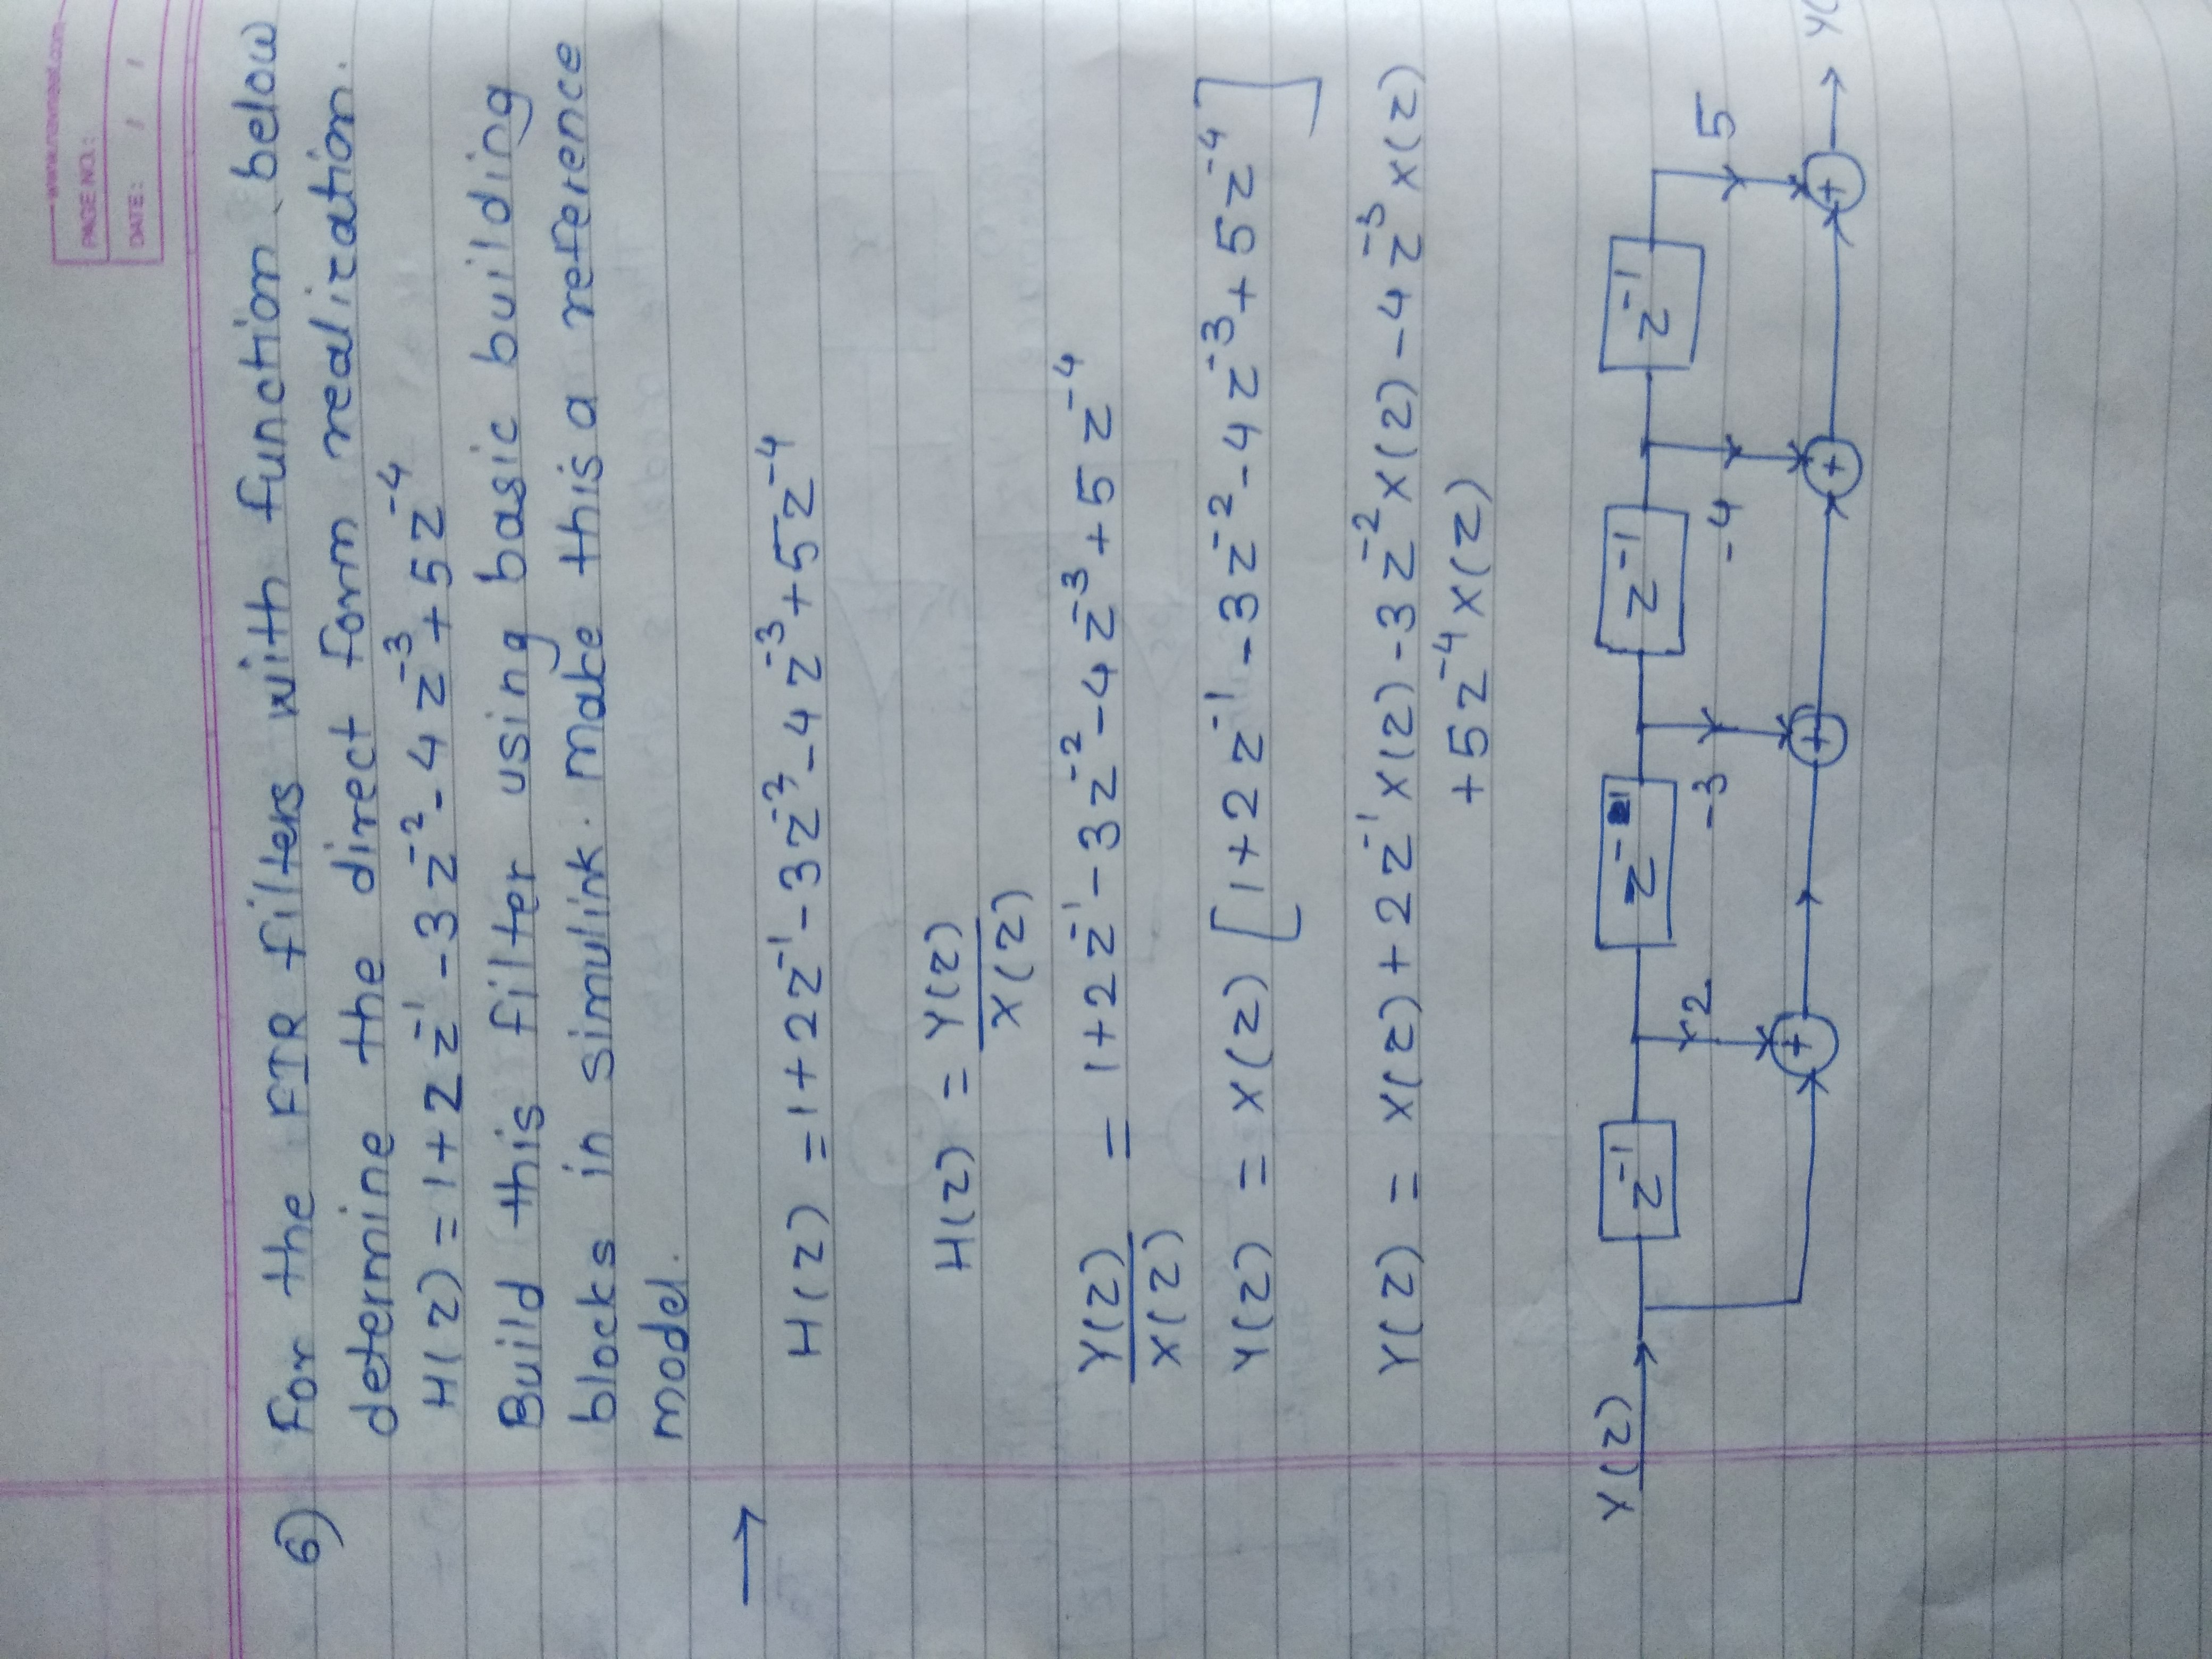 www.navneet.com
PAGE NO.:
DATE: / /
6) For the FIR filters with function below
determine the direct form realization.
H(z) = 1+2z⁻¹-3z⁻²-4z⁻³+5z⁻⁴
Build this filter using basic building
blocks in simulink. Make this a reference
model.
→
H(z) = 1+2z⁻¹-3z⁻²-4z⁻³+5z⁻⁴
H(z) = Y(z)
X(z)
Y(z) = 1+2z⁻¹-3z⁻²-4z⁻³+5z⁻⁴
X(z)
Y(z) = X(z) [1+2z⁻¹-3z⁻²-4z⁻³+5z⁻⁴]
Y(z) = X(z)+2z⁻¹X(z)-3z⁻²X(z)-4z⁻³X(z)
+5z⁻⁴X(z)
X(z) z⁻¹ z⁻¹ z⁻¹ z⁻¹
2 -3 -4 5
+ + + + Y(